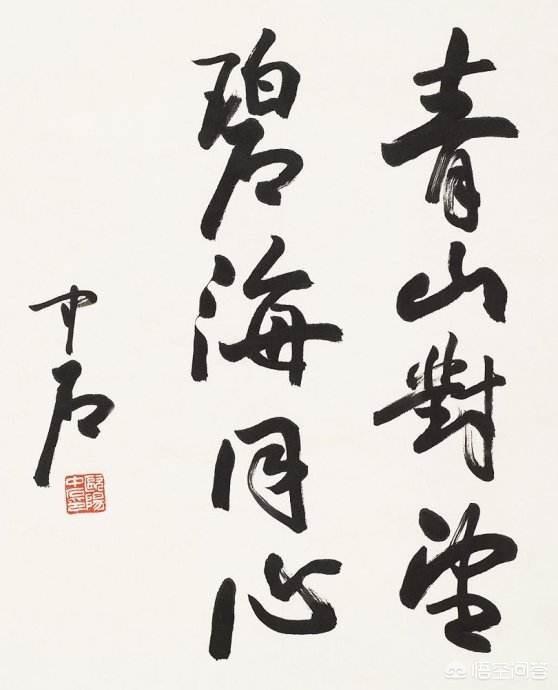 青山對望
碧海同心
中石
歐陽中石
悟空问答